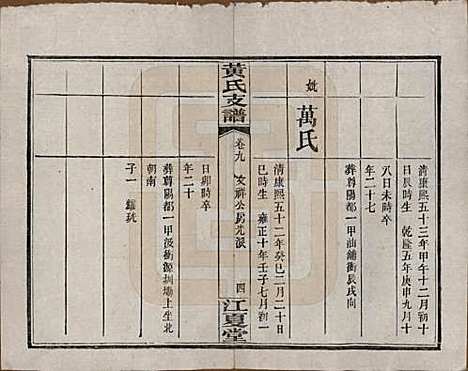 清康熙五十三年甲午十二月初一
日辰時生 乾隆五年庚申九月十
八日未時卒
年二十七
葬尊陽都一甲汕鋪衝辰戌向
妣 萬氏
清康熙五十二年癸巳二月二十日
巳時生 雍正十年壬子七月初一
黃氏支譜
卷九 文祥公房允派 四
江夏堂
日卯時卒
年二十
葬尊陽都一甲汲衝源圳塝上坐北
朝南
子一